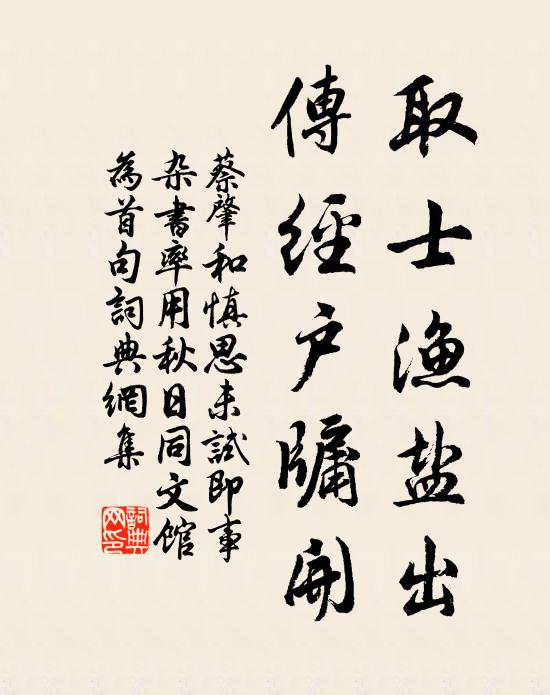 取士渔盐出
傳經户牖開
蔡肇和慎思未試即事
杂書率用秋日同文馆
為首句詞典網集
詞典
网印